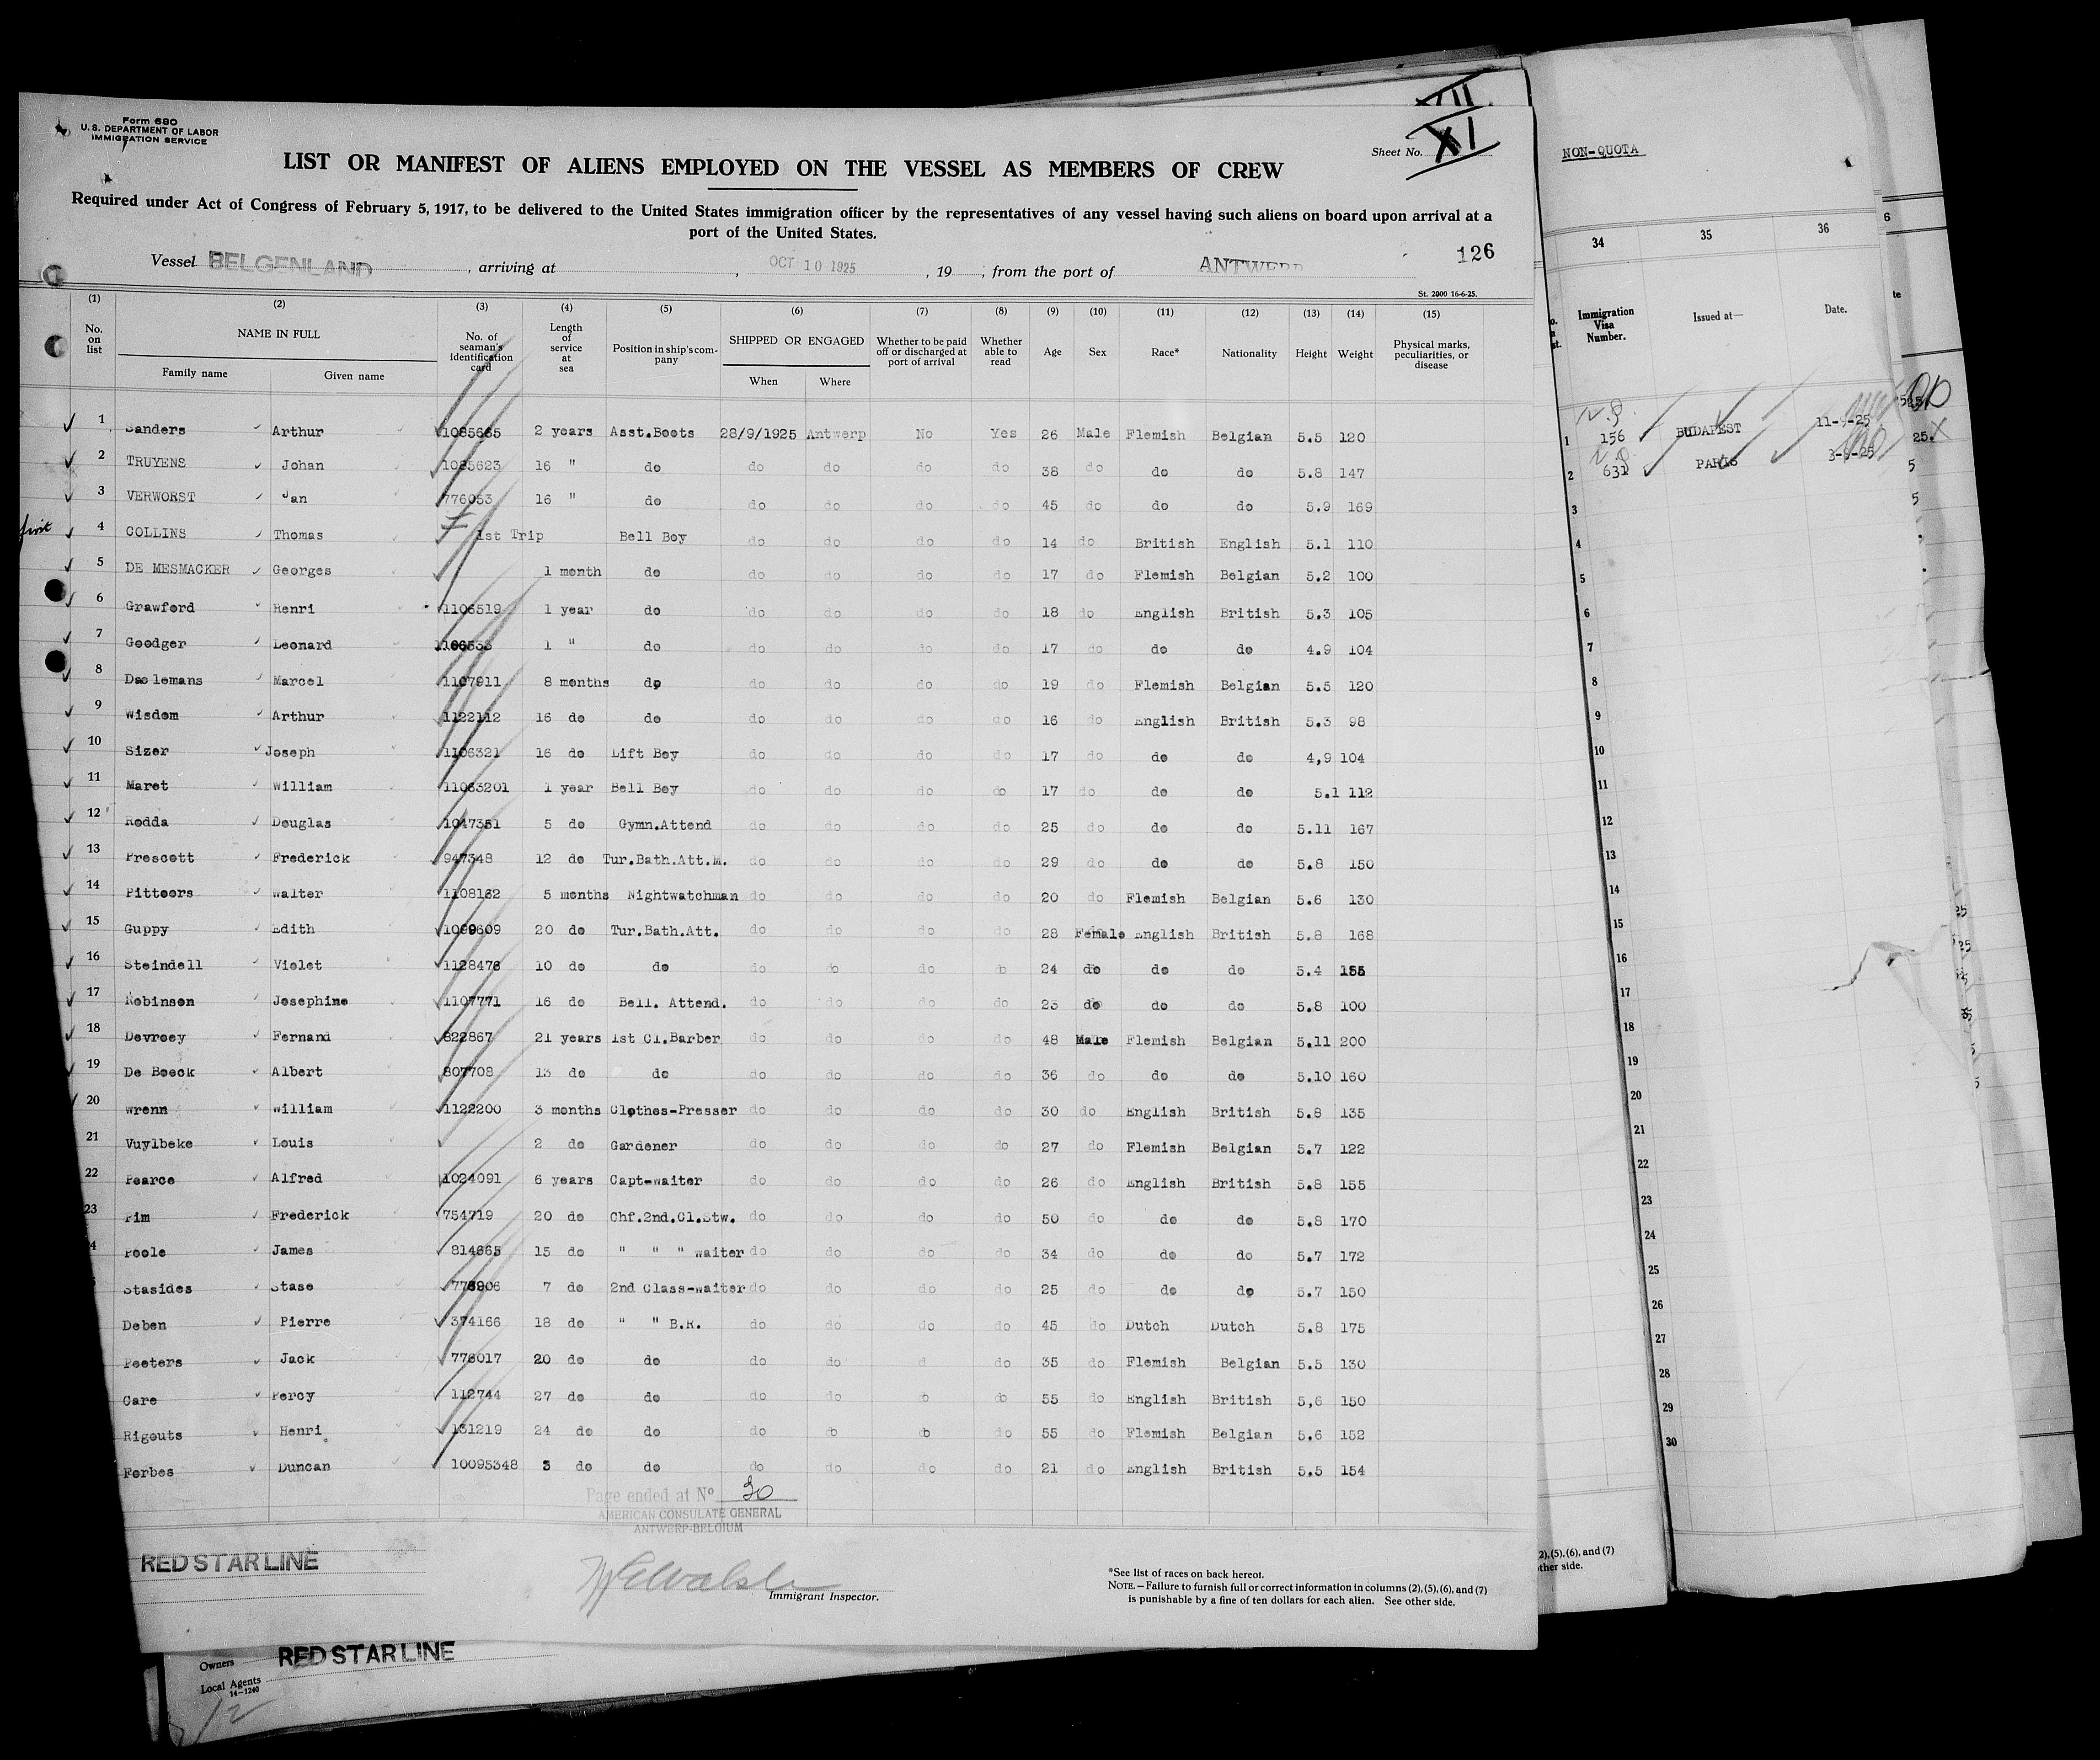 Form 680
U. S. DEPARTMENT OF LABOR
IMMIGRATION SERVICE
XI
Sheet No.
LIST OR MANIFEST OF ALIENS EMPLOYED ON THE VESSEL AS MEMBERS OF CREW
Required under Act of Congress of February 5, 1917, to be delivered to the United States immigration officer by the representatives of any vessel having such aliens on board upon arrival at a
port of the United States.
126
Vessel BELGENLAND, arriving at , OCT 10 1925, 19 ; from the port of ANTWERP
St. 2000 16-6-25.
(1) (2) (3) (4) (5) (6) (7) (8) (9) (10) (11) (12) (13) (14) (15)
No. on list NAME IN FULL Family name Given name No. of seaman's identification card Length of service at sea Position in ship's company SHIPPED OR ENGAGED When Where Whether to be paid off or discharged at port of arrival Whether able to read Age Sex Race* Nationality Height Weight Physical marks, peculiarities, or disease
1 Sanders Arthur 1085665 2 years Asst.Boots 28/9/1925 Antwerp No Yes 26 Male Flemish Belgian 5.5 120
2 TRUYENS Johan 1085623 16 " do do do do do 38 do do do 5.8 147
3 VERWORST Jan 776053 16 " do do do do do 45 do do do 5.9 169
first 4 COLLINS Thomas 1st Trip Bell Boy do do do do 14 do British English 5.1 110
5 DE MESMACKER Georges 1 month do do do do do 17 do Flemish Belgian 5.2 100
6 Grawford Henri 1106519 1 year do do do do do 18 do English British 5.3 105
7 Goodger Leonard 1 " do do do do do 17 do do do 4.9 104
8 Daelemans Marcel 1107911 8 months do do do do do 19 do Flemish Belgian 5.5 120
9 Wisdom Arthur 1122112 16 do do do do do do 16 do English British 5.3 98
10 Sizer Joseph 1106321 16 do Lift Boy do do do do 17 do do do 4,9 104
11 Maret William 11063201 1 year Bell Boy do do do do 17 do do do 5.1 112
12 Rodda Douglas 1047351 5 do Gymn.Attend do do do do 25 do do do 5.11 167
13 Prescott Frederick 947348 12 do Tur.Bath.Att.M. do do do do 29 do do do 5.8 150
14 Pittoors Walter 1108162 5 months Nightwatchman do do do do 20 do Flemish Belgian 5.6 130
15 Guppy Edith 1099609 20 do Tur.Bath.Att. do do do do 28 Female English British 5.8 168
16 Steindell Violet 1128478 10 do do do do do do 24 do do do 5.4 155
17 Robinson Josephine 1107771 16 do Bell. Attend. do do do do 23 do do do 5.8 100
18 Devroey Fernand 822867 21 years 1st Cl.Barber do do do do 48 Male Flemish Belgian 5.11 200
19 De Boeck Albert 807708 13 do do do do do do 36 do do do 5.10 160
20 Wrenn William 1122200 3 months Clothes-Presser do do do do 30 do English British 5.8 135
21 Vuylbeke Louis 2 do Gardener do do do do 27 do Flemish Belgian 5.7 122
22 Pearce Alfred 1024091 6 years Capt-waiter do do do do 26 do English British 5.8 155
23 Pim Frederick 754719 20 do Chf.2nd.Cl.Stw. do do do do 50 do do do 5.8 170
4 Poole James 814665 15 do " " " waiter do do do do 34 do do do 5.7 172
Stasides Stase 778906 7 do 2nd Class-waiter do do do do 25 do do do 5.7 150
Deben Pierre 374166 18 do " " B.R. do do do do 45 do Dutch Dutch 5.8 175
Peeters Jack 776017 20 do do do do d do 35 do Flemish Belgian 5.5 130
Care Percy 112744 27 do do do do do do 55 do English British 5,6 150
Rigouts Henri 131219 24 do do do do do do 55 do Flemish Belgian 5.6 152
Forbes Duncan 10095348 3 do do do do do do 21 do English British 5.5 154
Page ended at Nº 30
AMERICAN CONSULATE GENERAL
ANTWERP-BELGIUM
RED STAR LINE
Immigrant Inspector.
*See list of races on back hereof.
NOTE.—Failure to furnish full or correct information in columns (2), (5), (6), and (7)
is punishable by a fine of ten dollars for each alien. See other side.
Owners RED STAR LINE
Local Agents
14-1240
12
NON-QUOTA
34 35 36
Immigration Visa Number. Issued at— Date.
1 156 BUDAPEST 11-9-25
2 631 PARIS
3
4
5
6
7
8
9
10
11
12
13
14
15
16
17
18
19
20
21
22
23
24
25
26
27
28
29
30
2), (5), (6), and (7)
ther side.